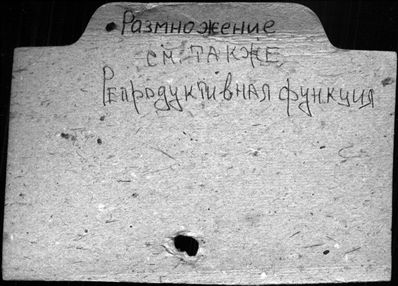 Размножение
см также
Репродуктивная функция